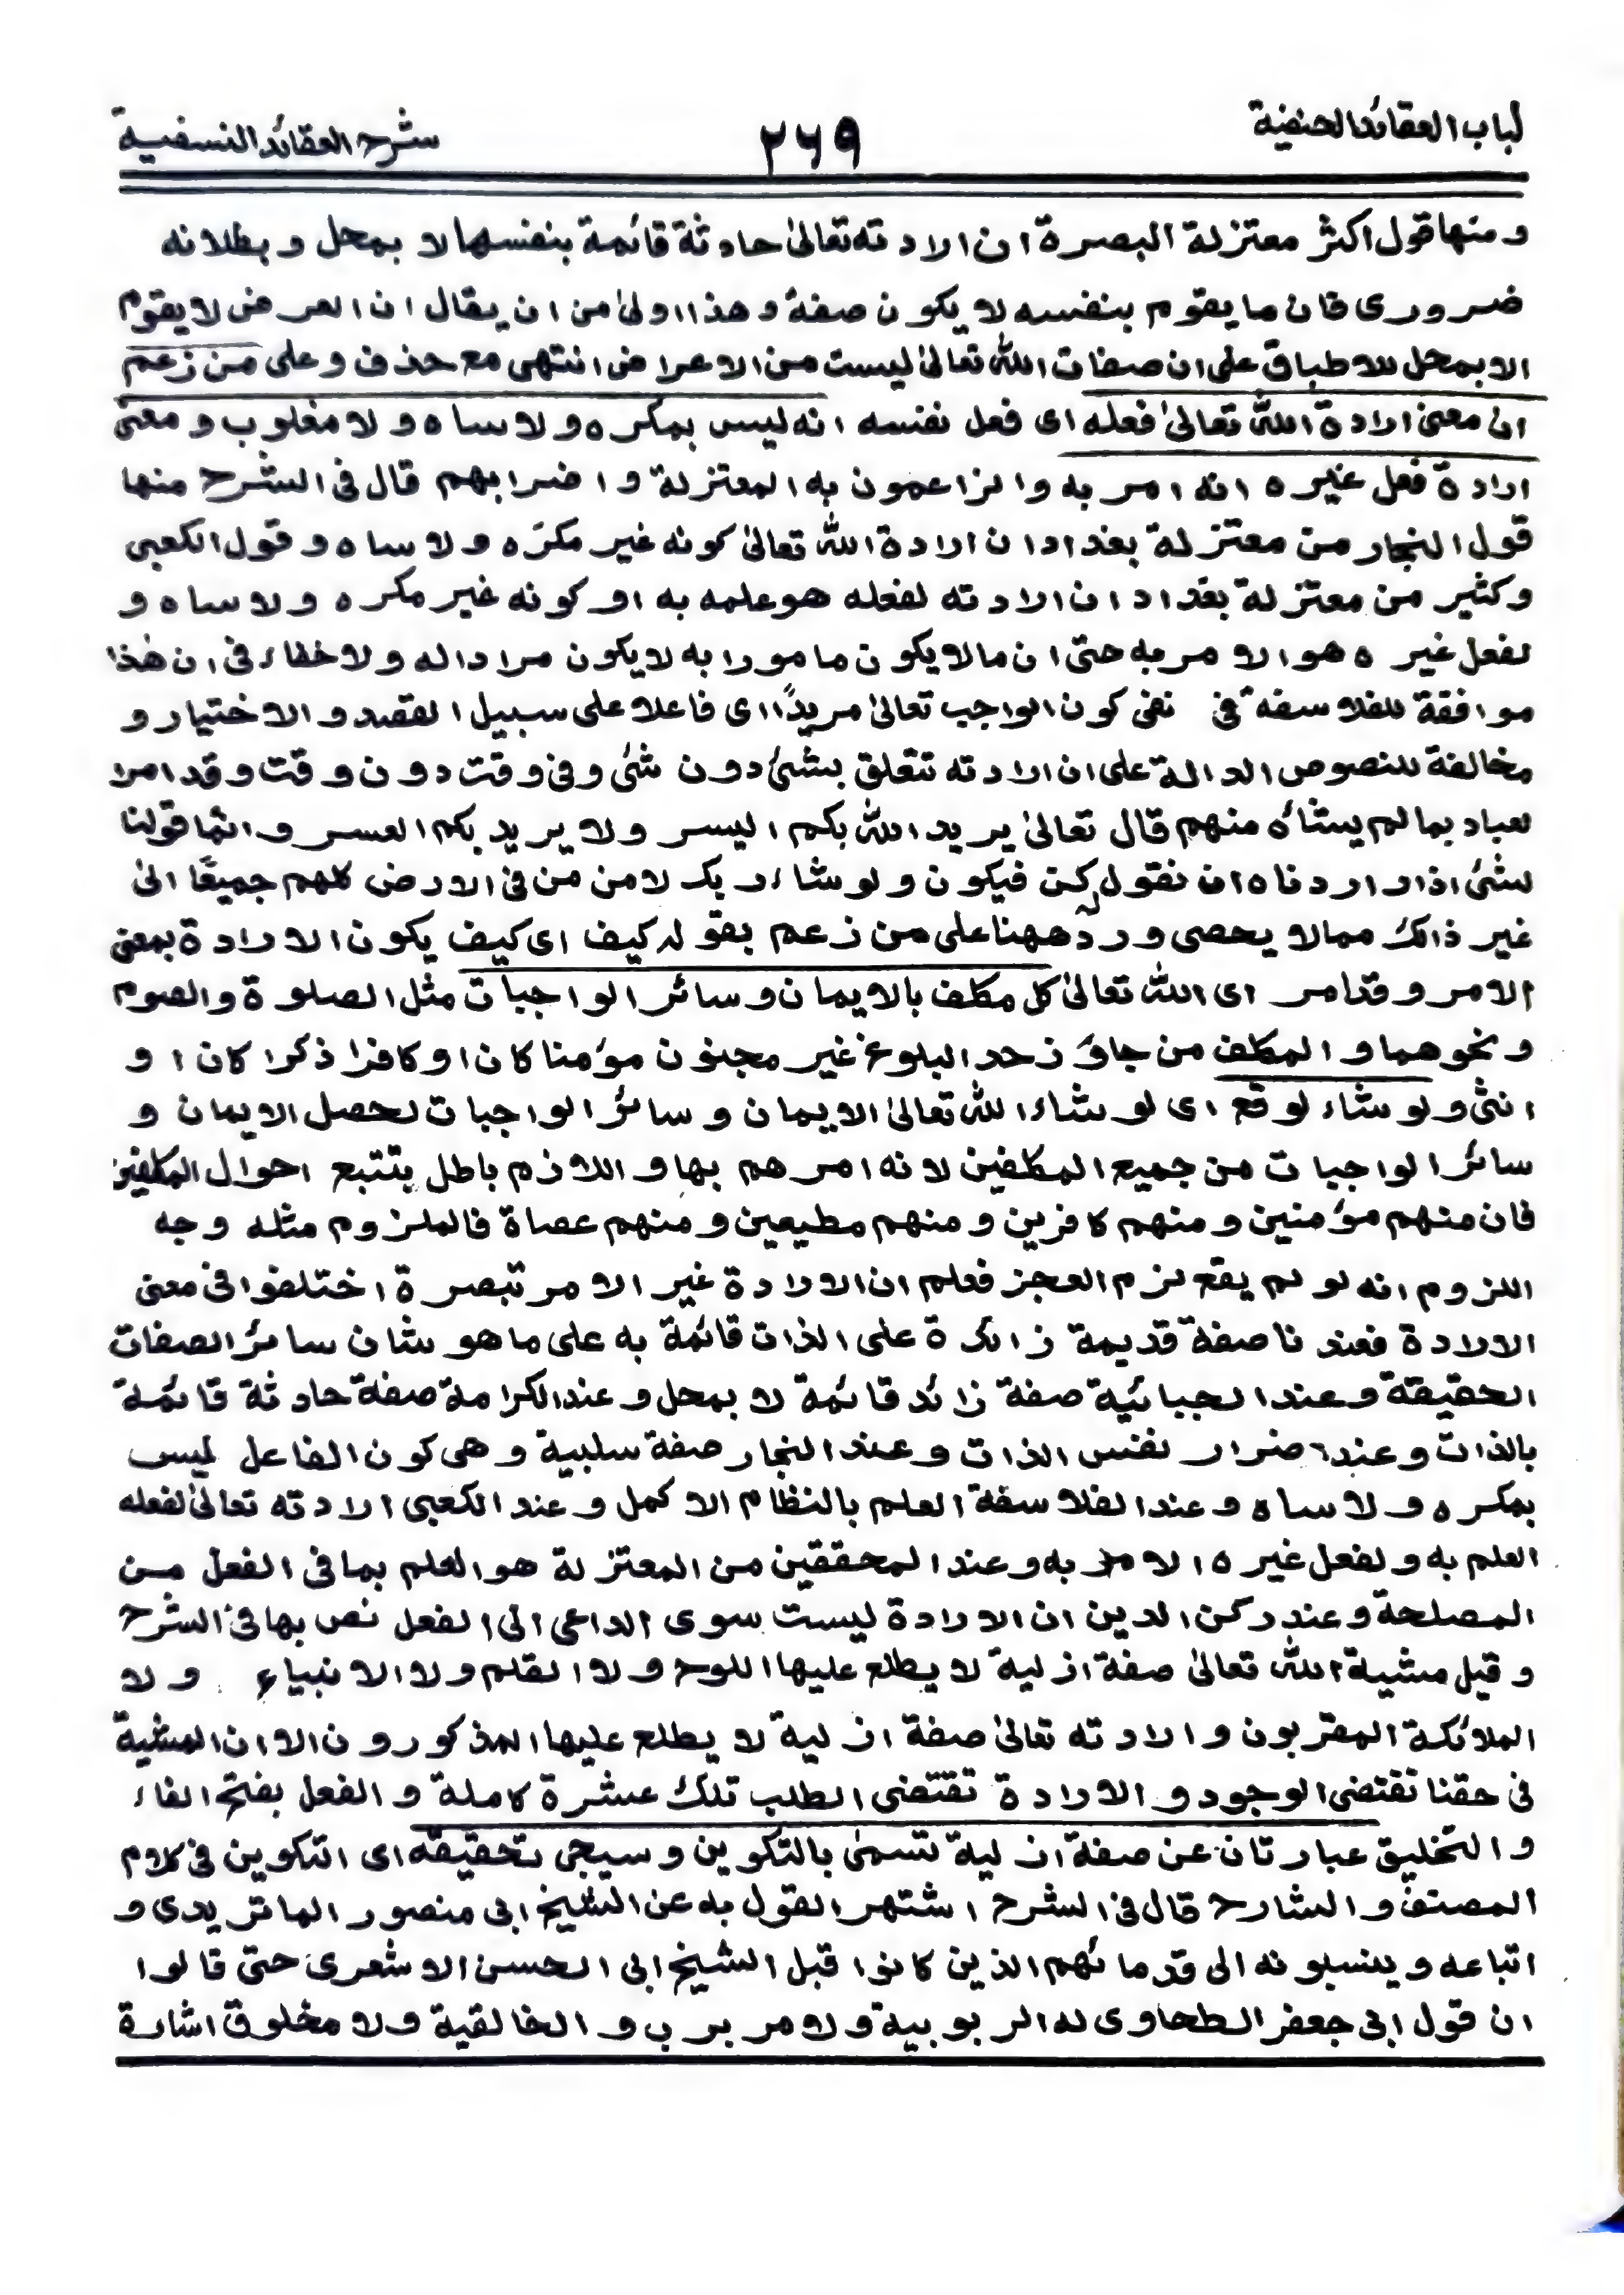 لباب العقائد الحنفية ٢٦٩ شرح العقائد النسفية
و منها قول اكثر معتزلة البصرة ان ارادته تعالىٰ حادثة قائمة بنفسها لا بمحل و بطلانه
ضروری فان ما يقوم بنفسه لا يكون صفة و هذا اولىٰ من ان يقال ان العرض لا يقوم
الا بمحل للاطباق علی ان صفات الله تعالىٰ ليست من الاعراض انتهى مع حذف و على من زعم
ان معنى ارادة الله تعالىٰ فعله ای فعل نفسه انه ليس بمكره و لا ساه و لا مغلوب و معنى
ارادة فعل غيره انه امر به و الزاعمون به المعتزلة و اضرابهم قال فی الشرح منها
قول النجار من معتزلة بغداد ان ارادة الله تعالىٰ كونه غير مكره و لا ساه و قول الكعبی
و كثير من معتزلة بغداد ان ارادته لفعله هو علمه به او كونه غير مكره و لا ساه و
لفعل غيره هو الامر به حتى ان ما لا يكون مامورا به لا يكون مرادا له و لا خفاء فی ان هٰذا
موافقة للفلاسفة فی نفی كون الواجب تعالىٰ مريدًا ای فاعلا على سبيل القصد و الاختيار و
مخالفة للنصوص الدالة على ان ارادته تتعلق بشئ دون شئ و فی وقت دون وقت و قد امرا
لعباد بما لم يشأه منهم قال تعالىٰ يريد الله بكم اليسر و لا يريد بكم العسر و انما قولنا
لشئ اذا اردناه ان نقول كن فيكون و لو شاء ربك لامن من فی الارض كلهم جميعًا الىٰ
غير ذالك مما لا يحصى و رد ههنا على من زعم بقوله كيف ای كيف يكون الارادة بمعنى
الامر و قد امر ای الله تعالىٰ كل مكلف بالايمان و سائر الواجبات مثل الصلوة و الصوم
و نحوهما و المكلف من جاوز حد البلوغ غير مجنون مؤمنا كان او كافرا ذكرا كان او
انثى و لو شاء لوقع ای لو شاء الله تعالىٰ الايمان و سائر الواجبات لحصل الايمان و
سائر الواجبات من جميع المكلفين لانه امرهم بها و اللازم باطل بتتبع احوال المكلفين
فان منهم مؤمنين و منهم كافرين و منهم مطيعين و منهم عصاة فالملزوم مثله وجه
اللزوم انه لو لم يقع لزم العجز فعلم ان الارادة غير الامر تبصرة اختلفوا فی معنى
الارادة فعندنا صفة قديمة زائدة على الذات قائمة به على ما هو شان سائر الصفات
الحقيقة و عند الجبائية صفة زائد قائمة لا بمحل و عند الكرامة صفة حادثة قائمة
بالذات و عند ضرار نفس الذات و عند النجار صفة سلبية و هی كون الفاعل ليس
بمكره و لا ساه و عند الفلاسفة العلم بالنظام الاكمل و عند الكعبی ارادته تعالىٰ لفعله
العلم به و لفعل غيره الامر به و عند المحققين من المعتزلة هو العلم بما فی الفعل من
المصلحة و عند ركن الدين ان الارادة ليست سوى الداعی الى الفعل نص بها فی الشرح
و قيل مشية الله تعالىٰ صفة ازلية لا يطلع عليها اللوح و لا القلم و لا الانبياء و لا
الملائكة المقربون و ارادته تعالىٰ صفة ازلية لا يطلع عليها المذكورون الا ان المشية
فی حقنا تقتضی الوجود و الارادة تقتضی الطلب تلك عشرة كاملة و الفعل بفتح الفاء
و التخليق عبارتان عن صفة ازلية تسمىٰ بالتكوين و سيجی تحقيقه ای التكوين فی كلام
المصنف و الشارح قال فی الشرح اشتهر القول به عن الشيخ ابی منصور الماتريدی و
اتباعه و ينسبونه الى قدمائهم الذين كانوا قبل الشيخ ابی الحسن الاشعری حتى قالوا
ان قول ابی جعفر الطحاوی له الربوبية و لا مربوب و الخالقية و لا مخلوق اشارة